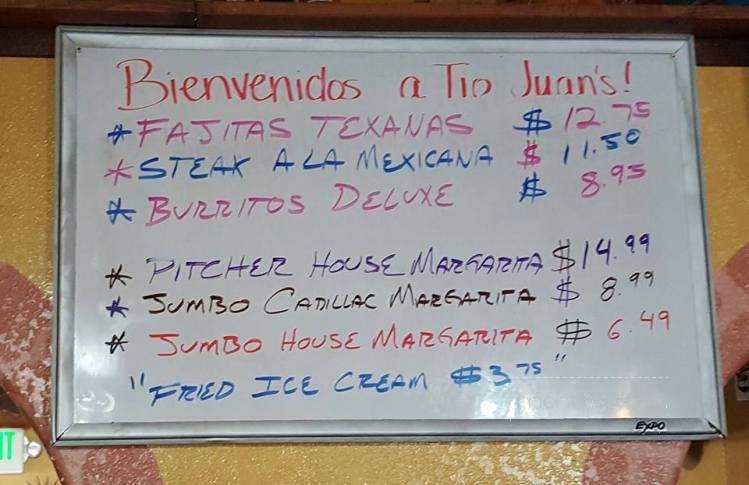 Bienvenidos a Tio Juan's!
* FAJITAS TEXANAS $ 12.75
* STEAK A LA MEXICANA $ 11.50
* BURRITOS DELUXE $ 8.95
* PITCHER HOUSE MARGARITA $ 14.99
* JUMBO CADILLAC MARGARITA $ 8.99
* JUMBO HOUSE MARGARITA $ 6.49
"FRIED ICE CREAM $3.75"
EXPO
IT